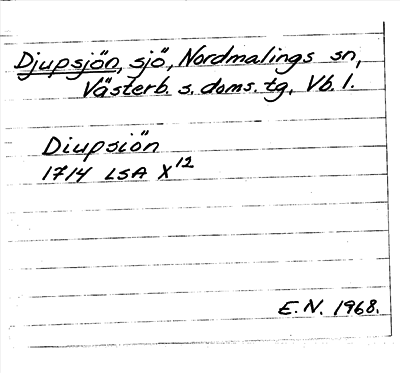 Djupsjön, sjö, Nordmalings sn,
Västerb. s. doms. tg, Vb. l.
Diupsiön
1714 LSA X12
E.N. 1968.